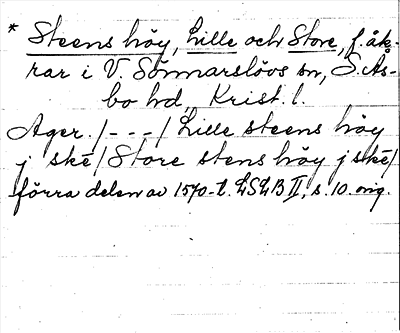 * Steens höy, Lille och Store, f. åk-
rar i V. Sönnarslövs sn, S. Ås-
bo hd, Krist. l.
Ager. /- - -/ Lille steens höy
j skē/ Store stens höy j skē/
förra delen av 1570-t. LSLB II, s. 10. orig.